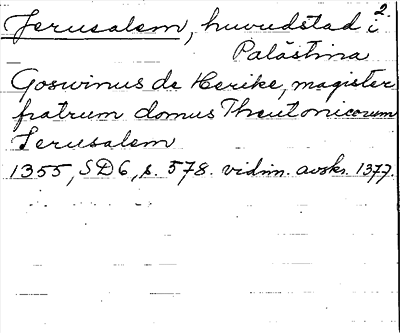 2.
Jerusalem, huvudstad i
Palästina
Goswinus de Herike, magister
fratrum domus Theutonicorum
Jerusalem
1355, SD6, s. 578. vidim. avskr. 1377.